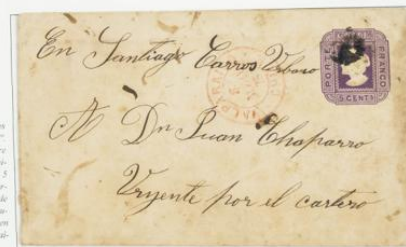 En Santiago Carros Urbano
PORTE FRANCO
5 CENT
A Dn Juan Chaparro
Urgente por el cartero